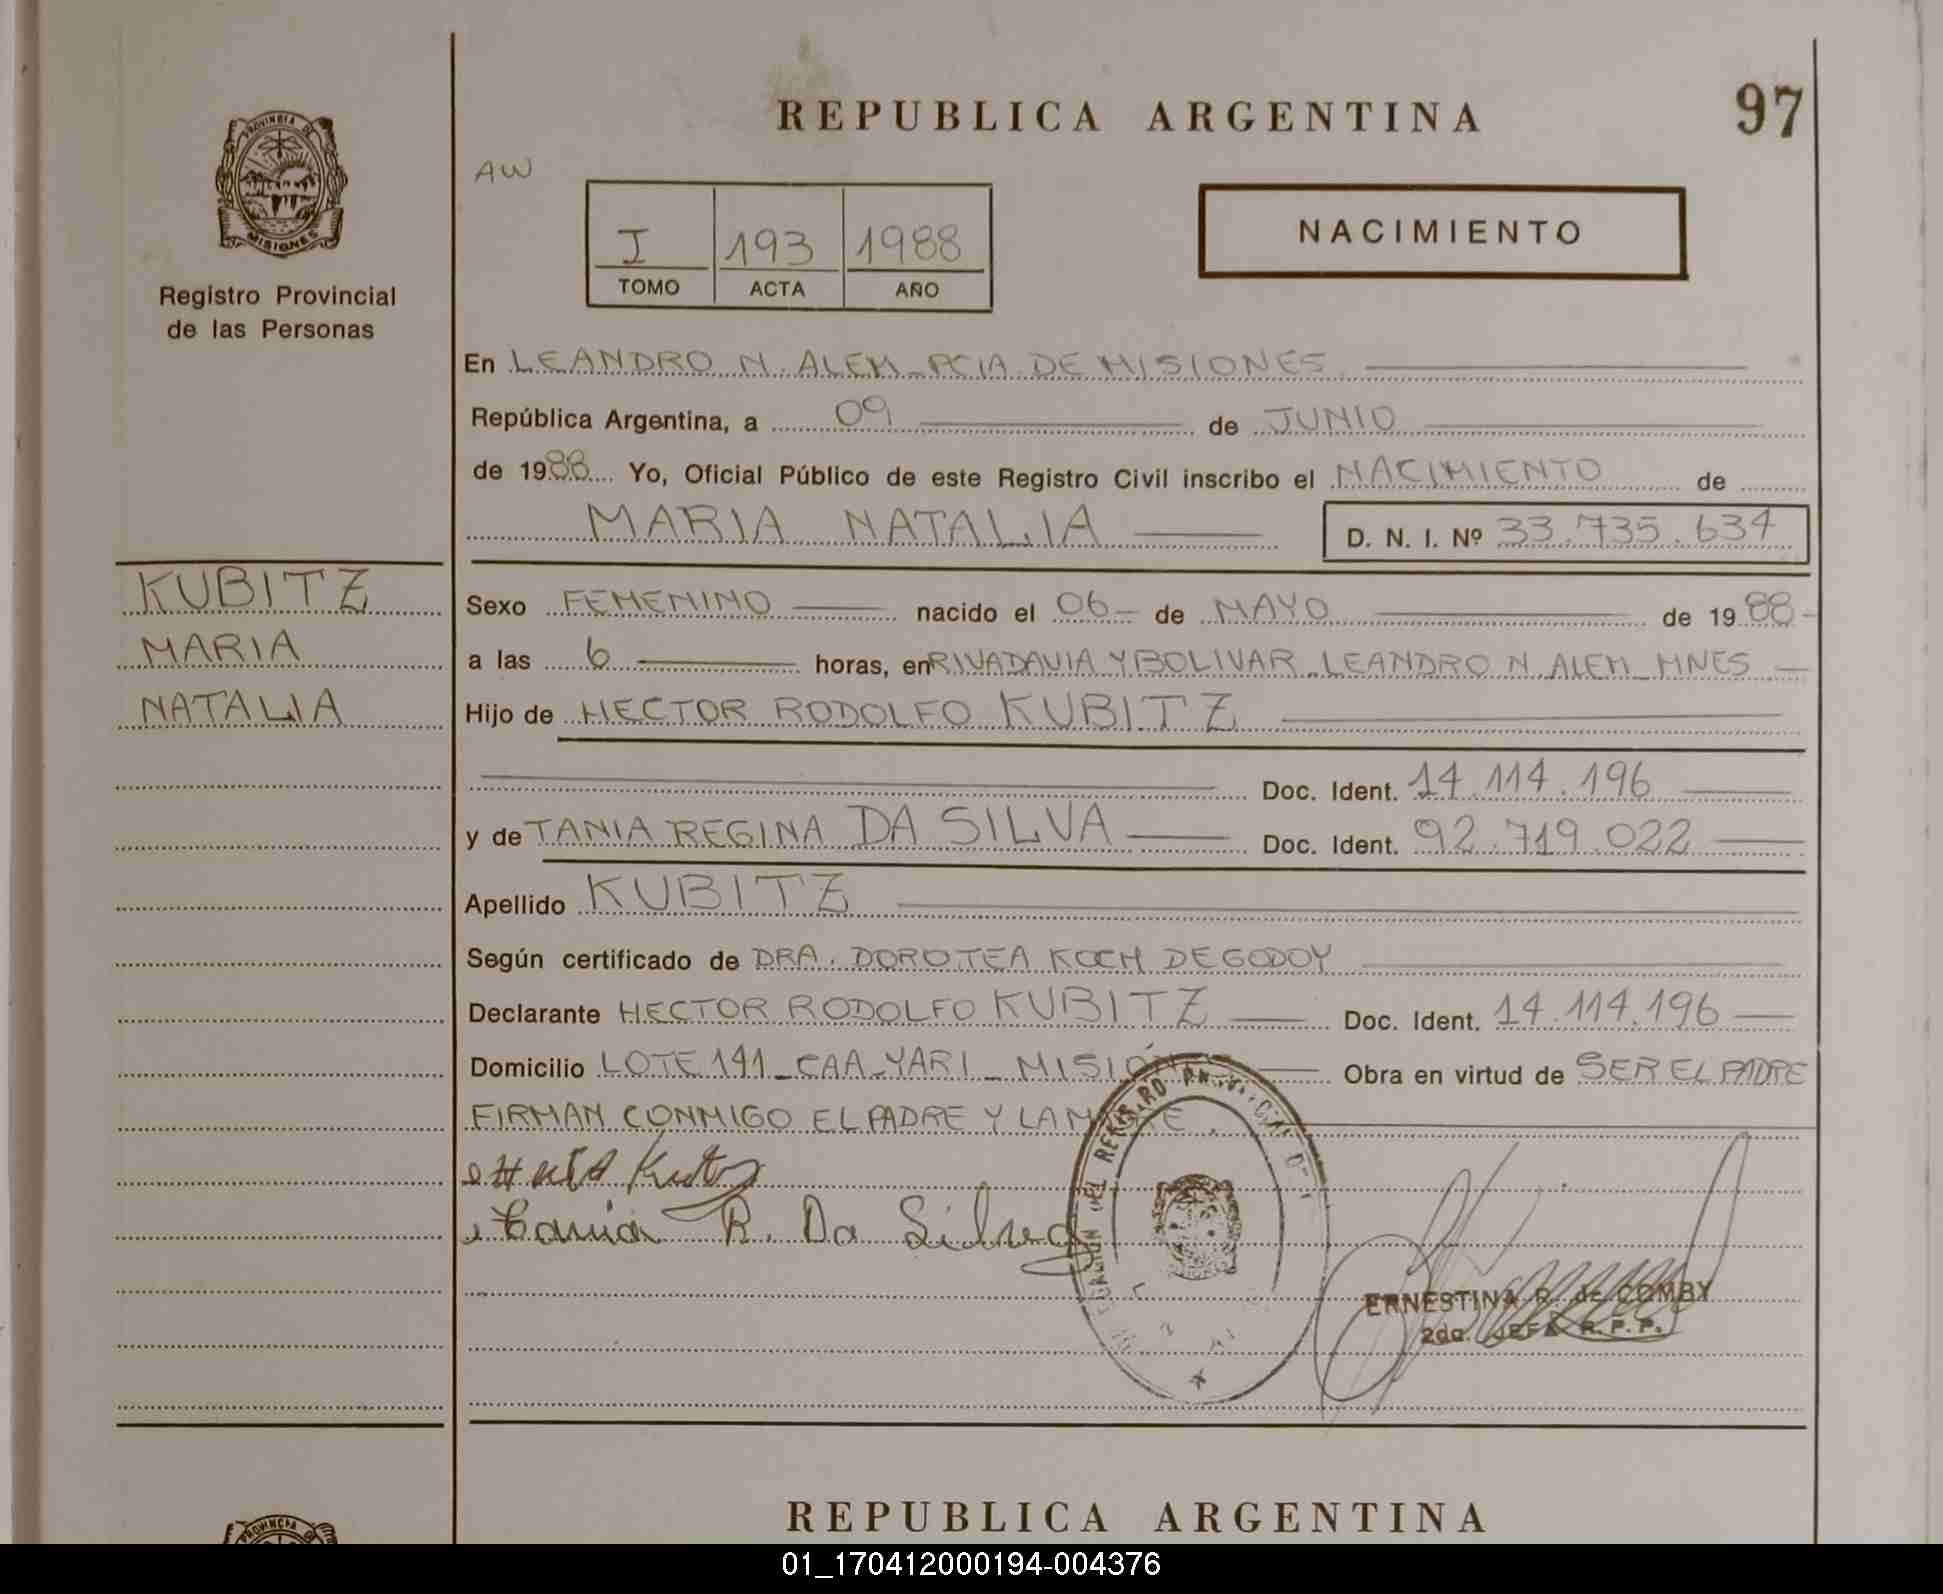 REPUBLICA ARGENTINA
97
PROVINCIA DE
MISIONES
Registro Provincial
de las Personas
AW
I 193 1988
TOMO ACTA AÑO
NACIMIENTO
En LEANDRO N. ALEM_PCIA DE MISIONES
República Argentina, a 09 de JUNIO
de 1988 Yo, Oficial Público de este Registro Civil inscribo el NACIMIENTO de
MARIA NATALIA D. N. I. Nº 33.735.634
KUBITZ
MARIA
NATALIA
Sexo FEMENINO nacido el 06 de MAYO de 1988
a las 6 horas, en RIVADAVIA Y BOLIVAR_LEANDRO N. ALEM_MNES
Hijo de HECTOR RODOLFO KUBITZ
Doc. Ident. 14.114.196
y de TANIA REGINA DA SILVA Doc. Ident. 92.719.022
Apellido KUBITZ
Según certificado de DRA. DOROTEA KOCH DE GODOY
Declarante HECTOR RODOLFO KUBITZ Doc. Ident. 14.114.196
Domicilio LOTE 141_CAA_YARI_MISIONES Obra en virtud de SER EL PADRE
FIRMAN CONMIGO EL PADRE Y LA MADRE.
Tania R. Da Silva
ERNESTINA R. de COMBY
2da. JEFA R.P.P.
REPUBLICA ARGENTINA
PROVINCIA DE
01_170412000194-004376